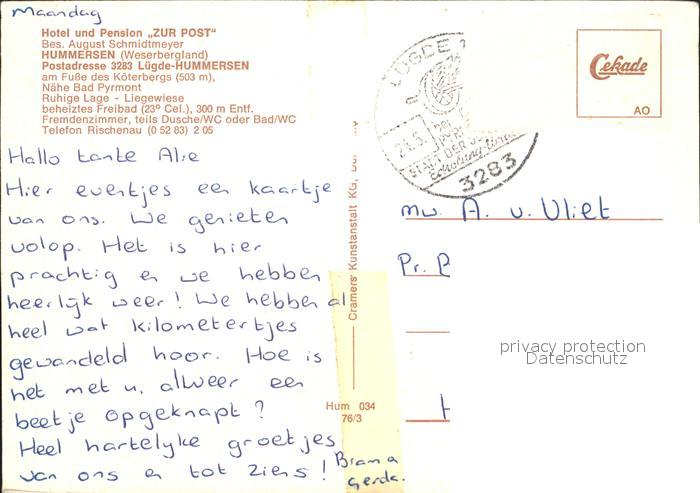 Maandag
Hotel und Pension „ZUR POST"
Bes. August Schmidtmeyer
HUMMERSEN (Weserbergland)
Postadresse 3283 Lügde-HUMMERSEN
am Fuße des Köterbergs (503 m),
Nähe Bad Pyrmont
Ruhige Lage - Liegewiese
beheiztes Freibad (23º Cel.), 300 m Entf.
Fremdenzimmer, teils Dusche/WC oder Bad/WC
Telefon Rischenau (0 52 83) 2 05
Hallo tante Alie
Hier eventjes een kaartje
van ons. We genieten
volop. Het is hier
prachtig en we hebben
heerlijk weer! We hebben al
heel wat kilometertjes
gewandeld hoor. Hoe is
het met u, alweer een
beetje opgeknapt?
Heel hartelyke groetjes
van ons en tot ziens!
Bram a
Gerda.
Cramers Kunstanstalt KG,
Hum 034
76/3
LÜGDE
STADT DER
3283
Cekade
AO
mw. A. v. Vliet
Pr.
privacy protection
Datenschutz